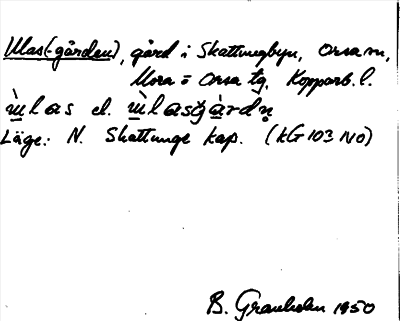 Ulas(-gården), gård i Skattungbyn, Orsa sn,
Mora o Orsa tg, Kopparb. l.
ẁlas el. ẁlasgàrdn̥
Läge: N. Skattunge kap. (kG 103 NO)
B. Granholm 1950